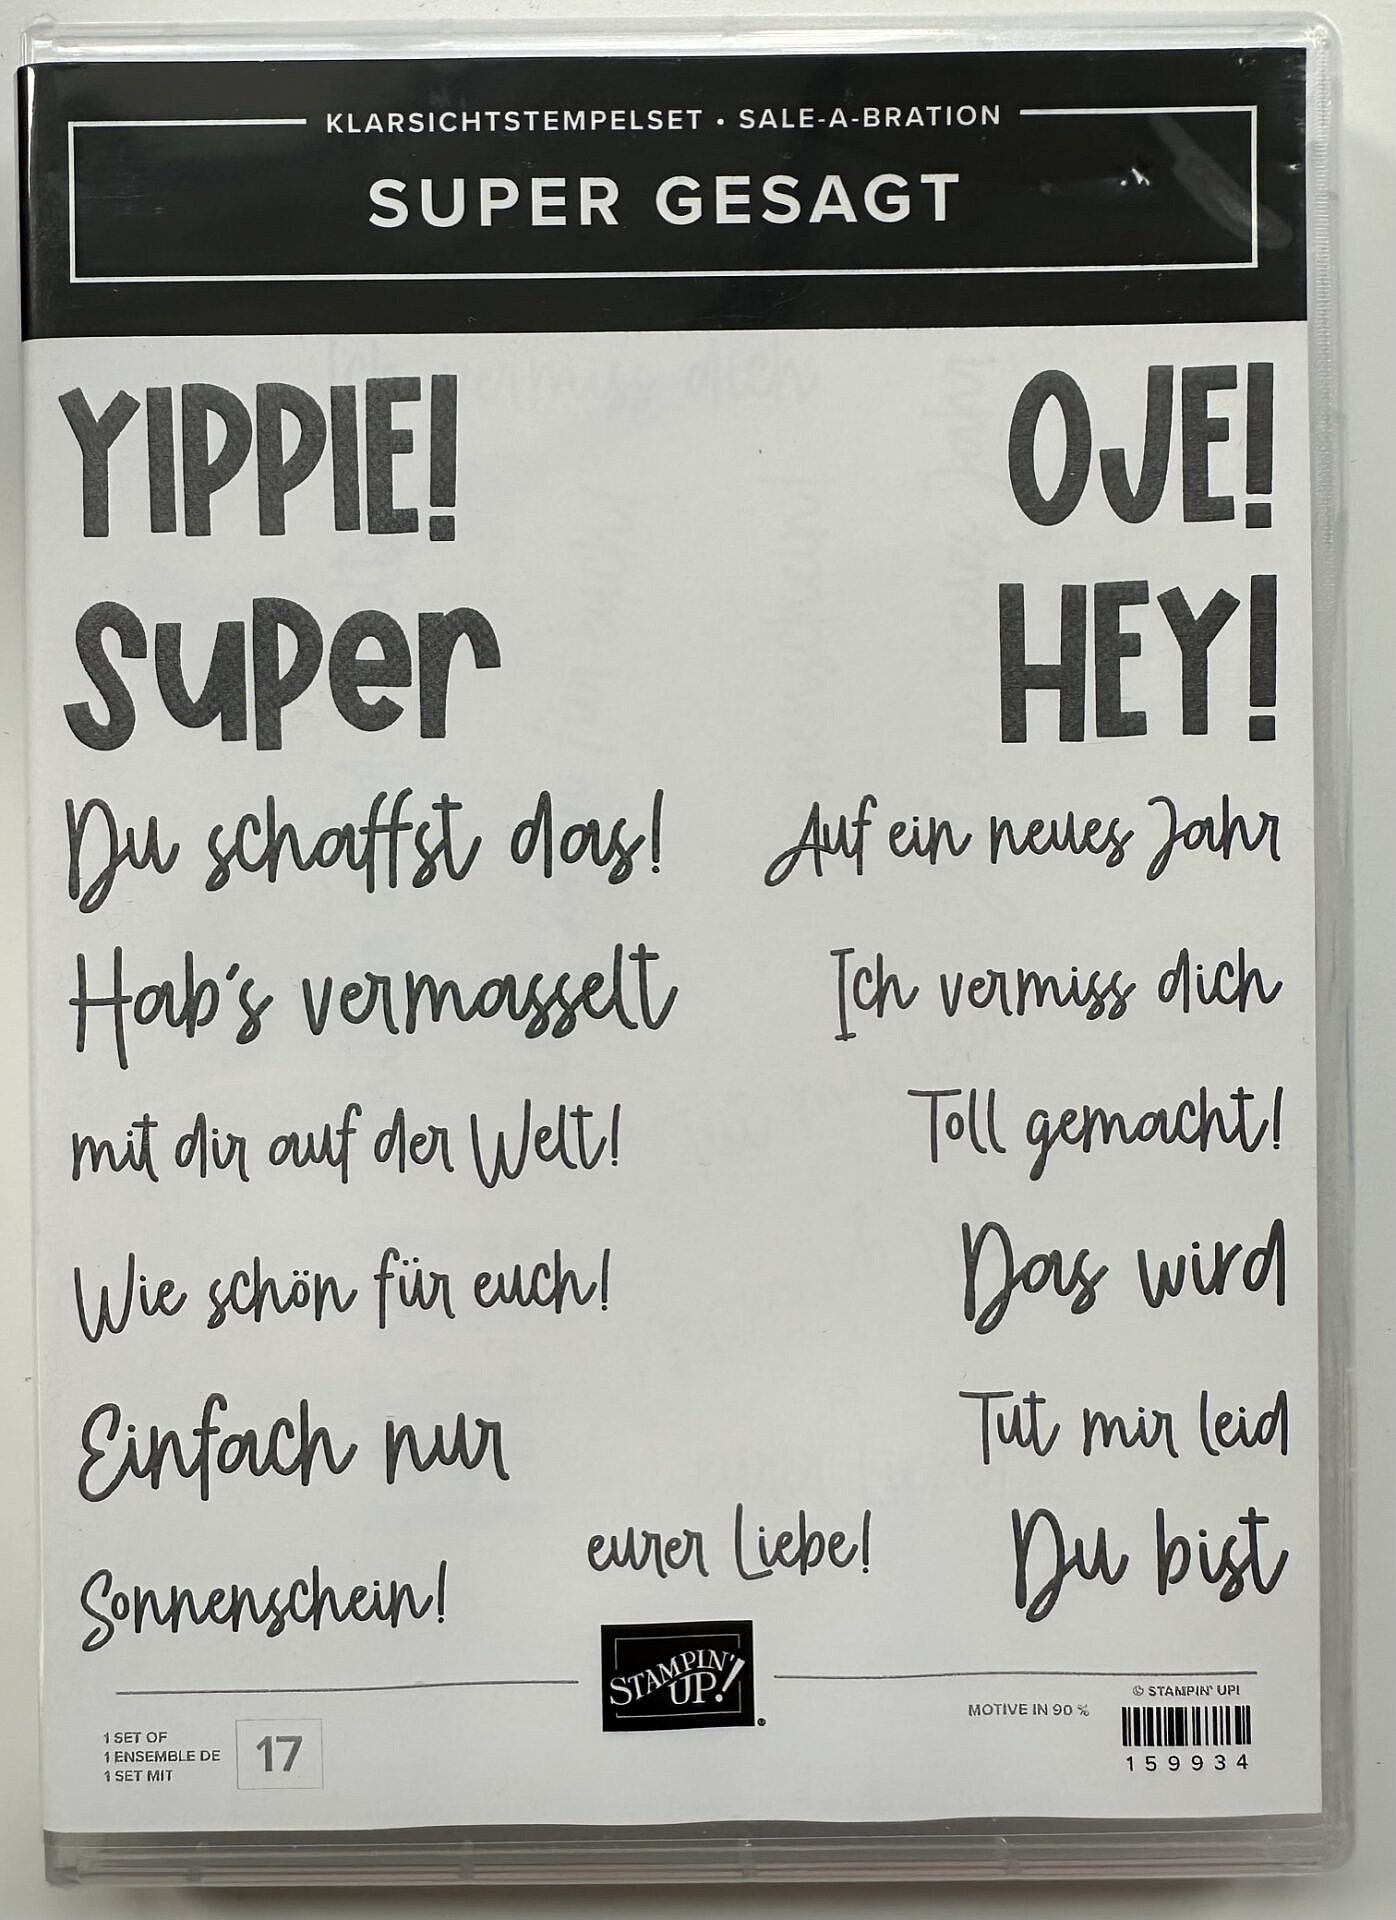 KLARSICHTSTEMPELSET • SALE-A-BRATION
SUPER GESAGT
YIPPIE!
OJE!
Super
HEY!
Du schaffst das!
Auf ein neues Jahr
Hab's vermasselt
Ich vermiss dich
mit dir auf der Welt!
Toll gemacht!
Wie schön für euch!
Das wird
Einfach nur
Tut mir leid
eurer Liebe!
Du bist
Sonnenschein!
STAMPIN' UP!
®
1 SET OF
1 ENSEMBLE DE
1 SET MIT
17
MOTIVE IN 90 %
© STAMPIN' UP!
159934